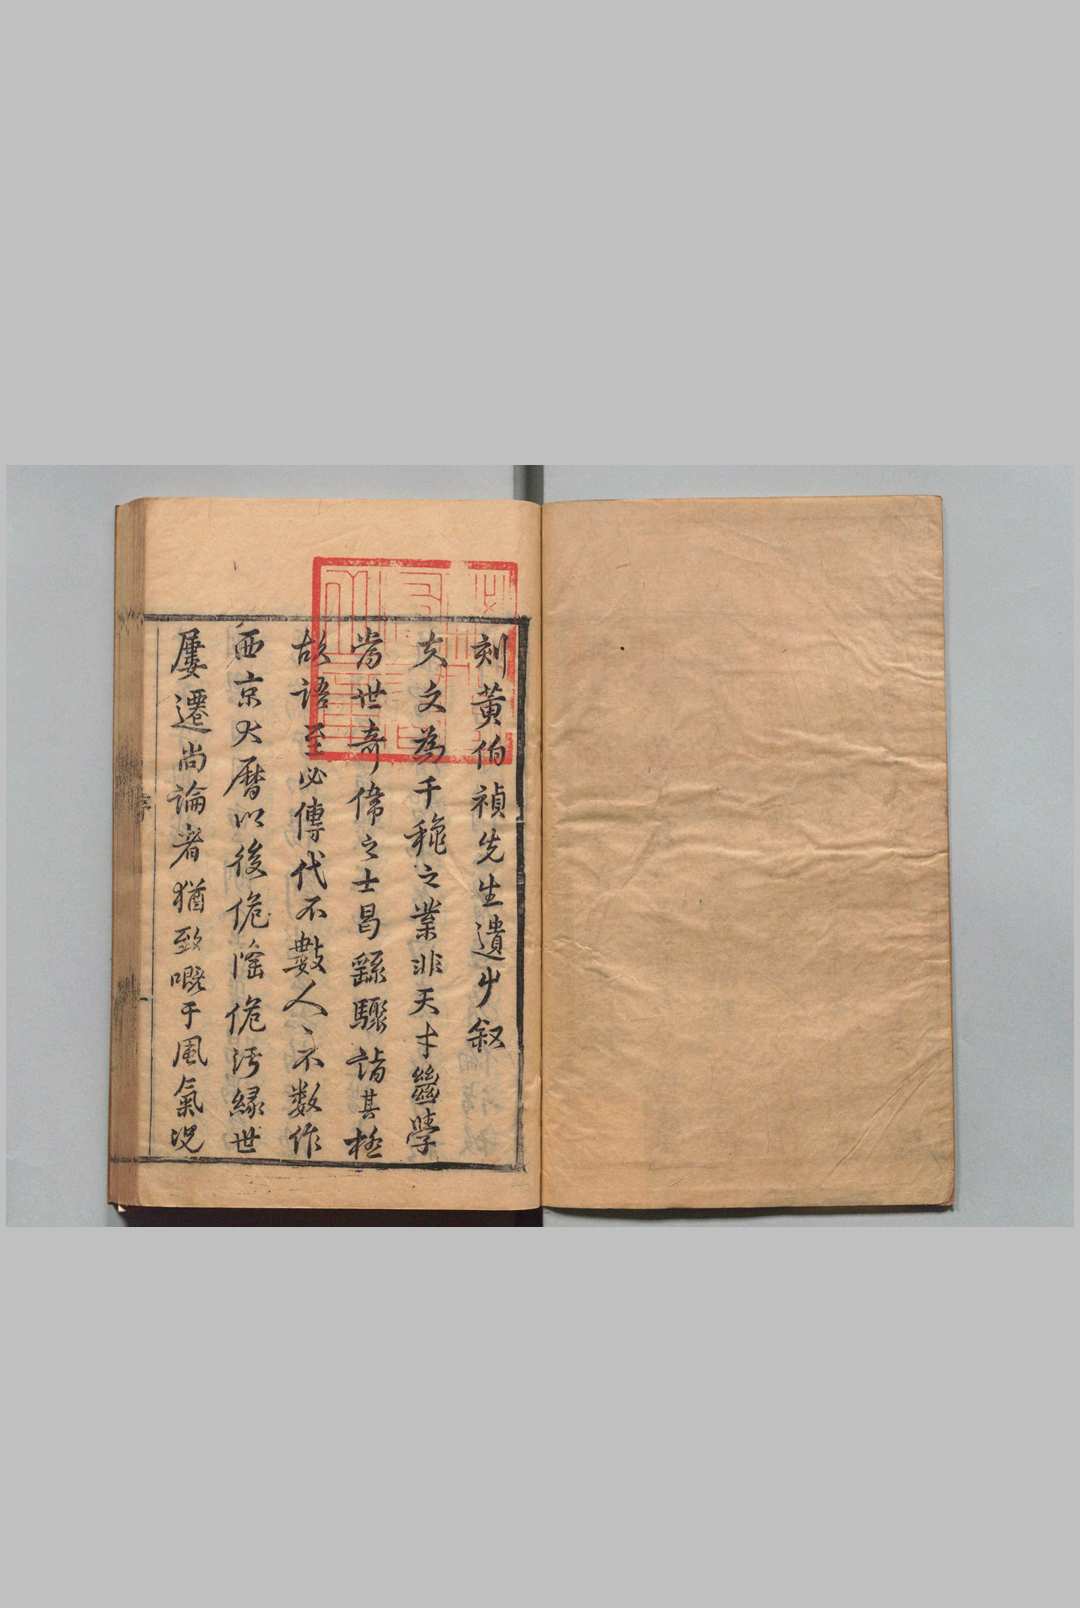 刻黄伯禎先生遺艸叙
夫文為千穐之業非天才蠿學
當世奇偉之士曷繇驟詣其極
故語至必傳代不數人人不数作
西京大曆以後佹隆佹汚緣世
屢遷尚論者猶致嘅于風氣況
序
一